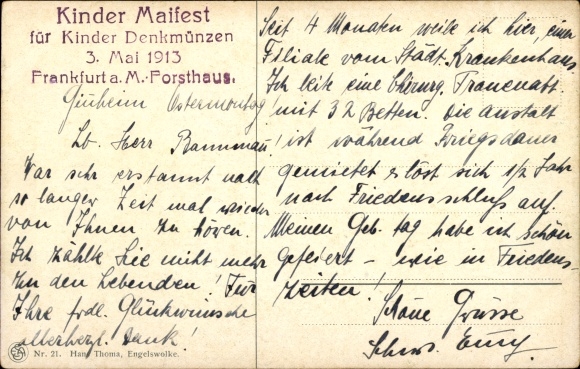 Kinder Maifest
für Kinder Denkmünzen
3. Mai 1913
Frankfurt a. M.-Forsthaus.
Ostermontag!
Lb. Herr
War sehr erstaunt nach
so langer Zeit mal wieder
von Ihnen zu hören.
Ich zählte Sie nicht mehr
zu den Lebenden! Für
Ihre frdl. Glückwünsche
allerherzl. Dank!
Nr. 21. Hans Thoma, Engelswolke.
Seit 4 Monaten weile ich hier, einer
Filiale vom Städt. Krankenhaus.
Ich leite eine Chirurg. Frauenabt.
mit 32 Betten. Die Anstalt
ist während Kriegsdauer
gemietet & löst sich 1/2 Jahr
nach Friedensschluß auf.
Meinen Geb. tag habe ich schön
gefeiert – wie in Friedens-
zeiten!
Schöne Grüsse
Schws. Emy